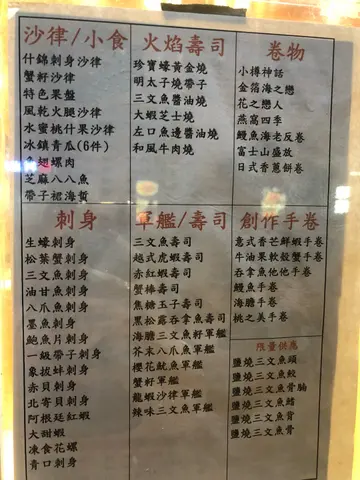 沙律/小食
什錦刺身沙律
蟹籽沙律
特色果盤
風乾火腿沙律
水蜜桃什果沙律
冰鎮青瓜(6件)
翅螺肉
芝麻八八魚
帶子裙海蜇
火焰壽司
珍寶蠔黃金燒
明太子燒帶子
三文魚醬油燒
大蝦芝士燒
左口魚邊醬油燒
和風牛肉燒
卷物
小樽神話
金箔海之戀
花之戀人
燕窩四季
鰻魚海老反卷
富士山盛放
日式香蔥餅卷
刺身
生蠔刺身
松葉蟹刺身
三文魚刺身
油甘魚刺身
八爪魚刺身
墨魚刺身
鲍魚片刺身
一級帶子刺身
象拔蚌刺身
赤貝刺身
北寄貝刺身
阿根廷紅蝦
大甜蝦
凍食花螺
青口刺身
軍艦/壽司
三文魚壽司
越式虎蝦壽司
赤紅蝦壽司
蟹棒壽司
焦糖玉子壽司
黑松露吞拿魚壽司
海膽三文魚籽軍艦
芥末八爪魚軍艦
櫻花魷魚軍艦
蟹籽軍艦
龍蝦沙律軍艦
辣味三文魚軍艦
創作手卷
意式香芒鮮蝦手卷
牛油果軟殼蟹手卷
吞拿魚他他手卷
鰻魚手卷
海膽手卷
桃之美手卷
限量供應
鹽燒三文魚頭
鹽燒三文魚鮫
鹽燒三文魚骨腩
鹽燒三文魚鰭
鹽燒三文魚背
鹽燒三文魚骨